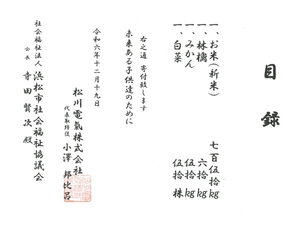 目録
一、お米(新米) 七百伍十kg
一、林檎 六十kg
一、みかん 伍十kg
一、白菜 伍十株
右之通 寄付致します
未来ある子供達のために
令和六年十二月十九日
松川電氣株式会社
代表取締役 小澤邦比呂
社会福祉法人 浜松市社会福祉協議会
会長 寺田賢次殿